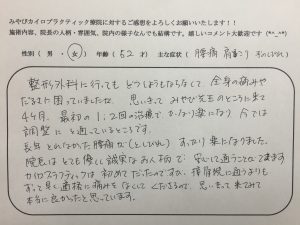 みやびカイロプラクティック療院に対するご感想をよろしくお願いいたします!!
施術内容、院長の人柄・雰囲気、院内の様子なんでも結構です。嬉しいコメント大歓迎です (*^_^*)
性別 ( 男 ・ 女 ) 年齢 ( 52 才 ) 主な症状 ( 腰痛 肩こり
整形外科に行っても どうしようもならなくて、全身の痛みや
だるさに困っていましたが、思いきって みやび先生のところに来て
4ヶ月、最初の 1, 2回の治療で かなり楽になり 今では
調整に 通っているところです。
長年 とれなかった腰痛が すっかり楽になりました。
院長は とても優しく 誠実なお人柄で 安心して通うことができます
カイロプラクティックは 初めてだったのですが、接骨院に通うよりも
ずっと早く 直接に痛みをなくして くださるので、思いきって来てみて
本当に良かったと思っています。